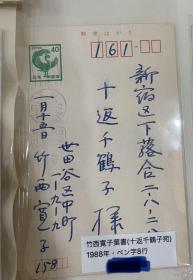 郵便はがき
40
161
新宿区下落合二-八-二-八
十返千鶴子様
一月十五日
世田谷区中町
一-九-九
竹西寛子
158
竹西寛子葉書(十返千鶴子宛)
1988年・ペン字8行